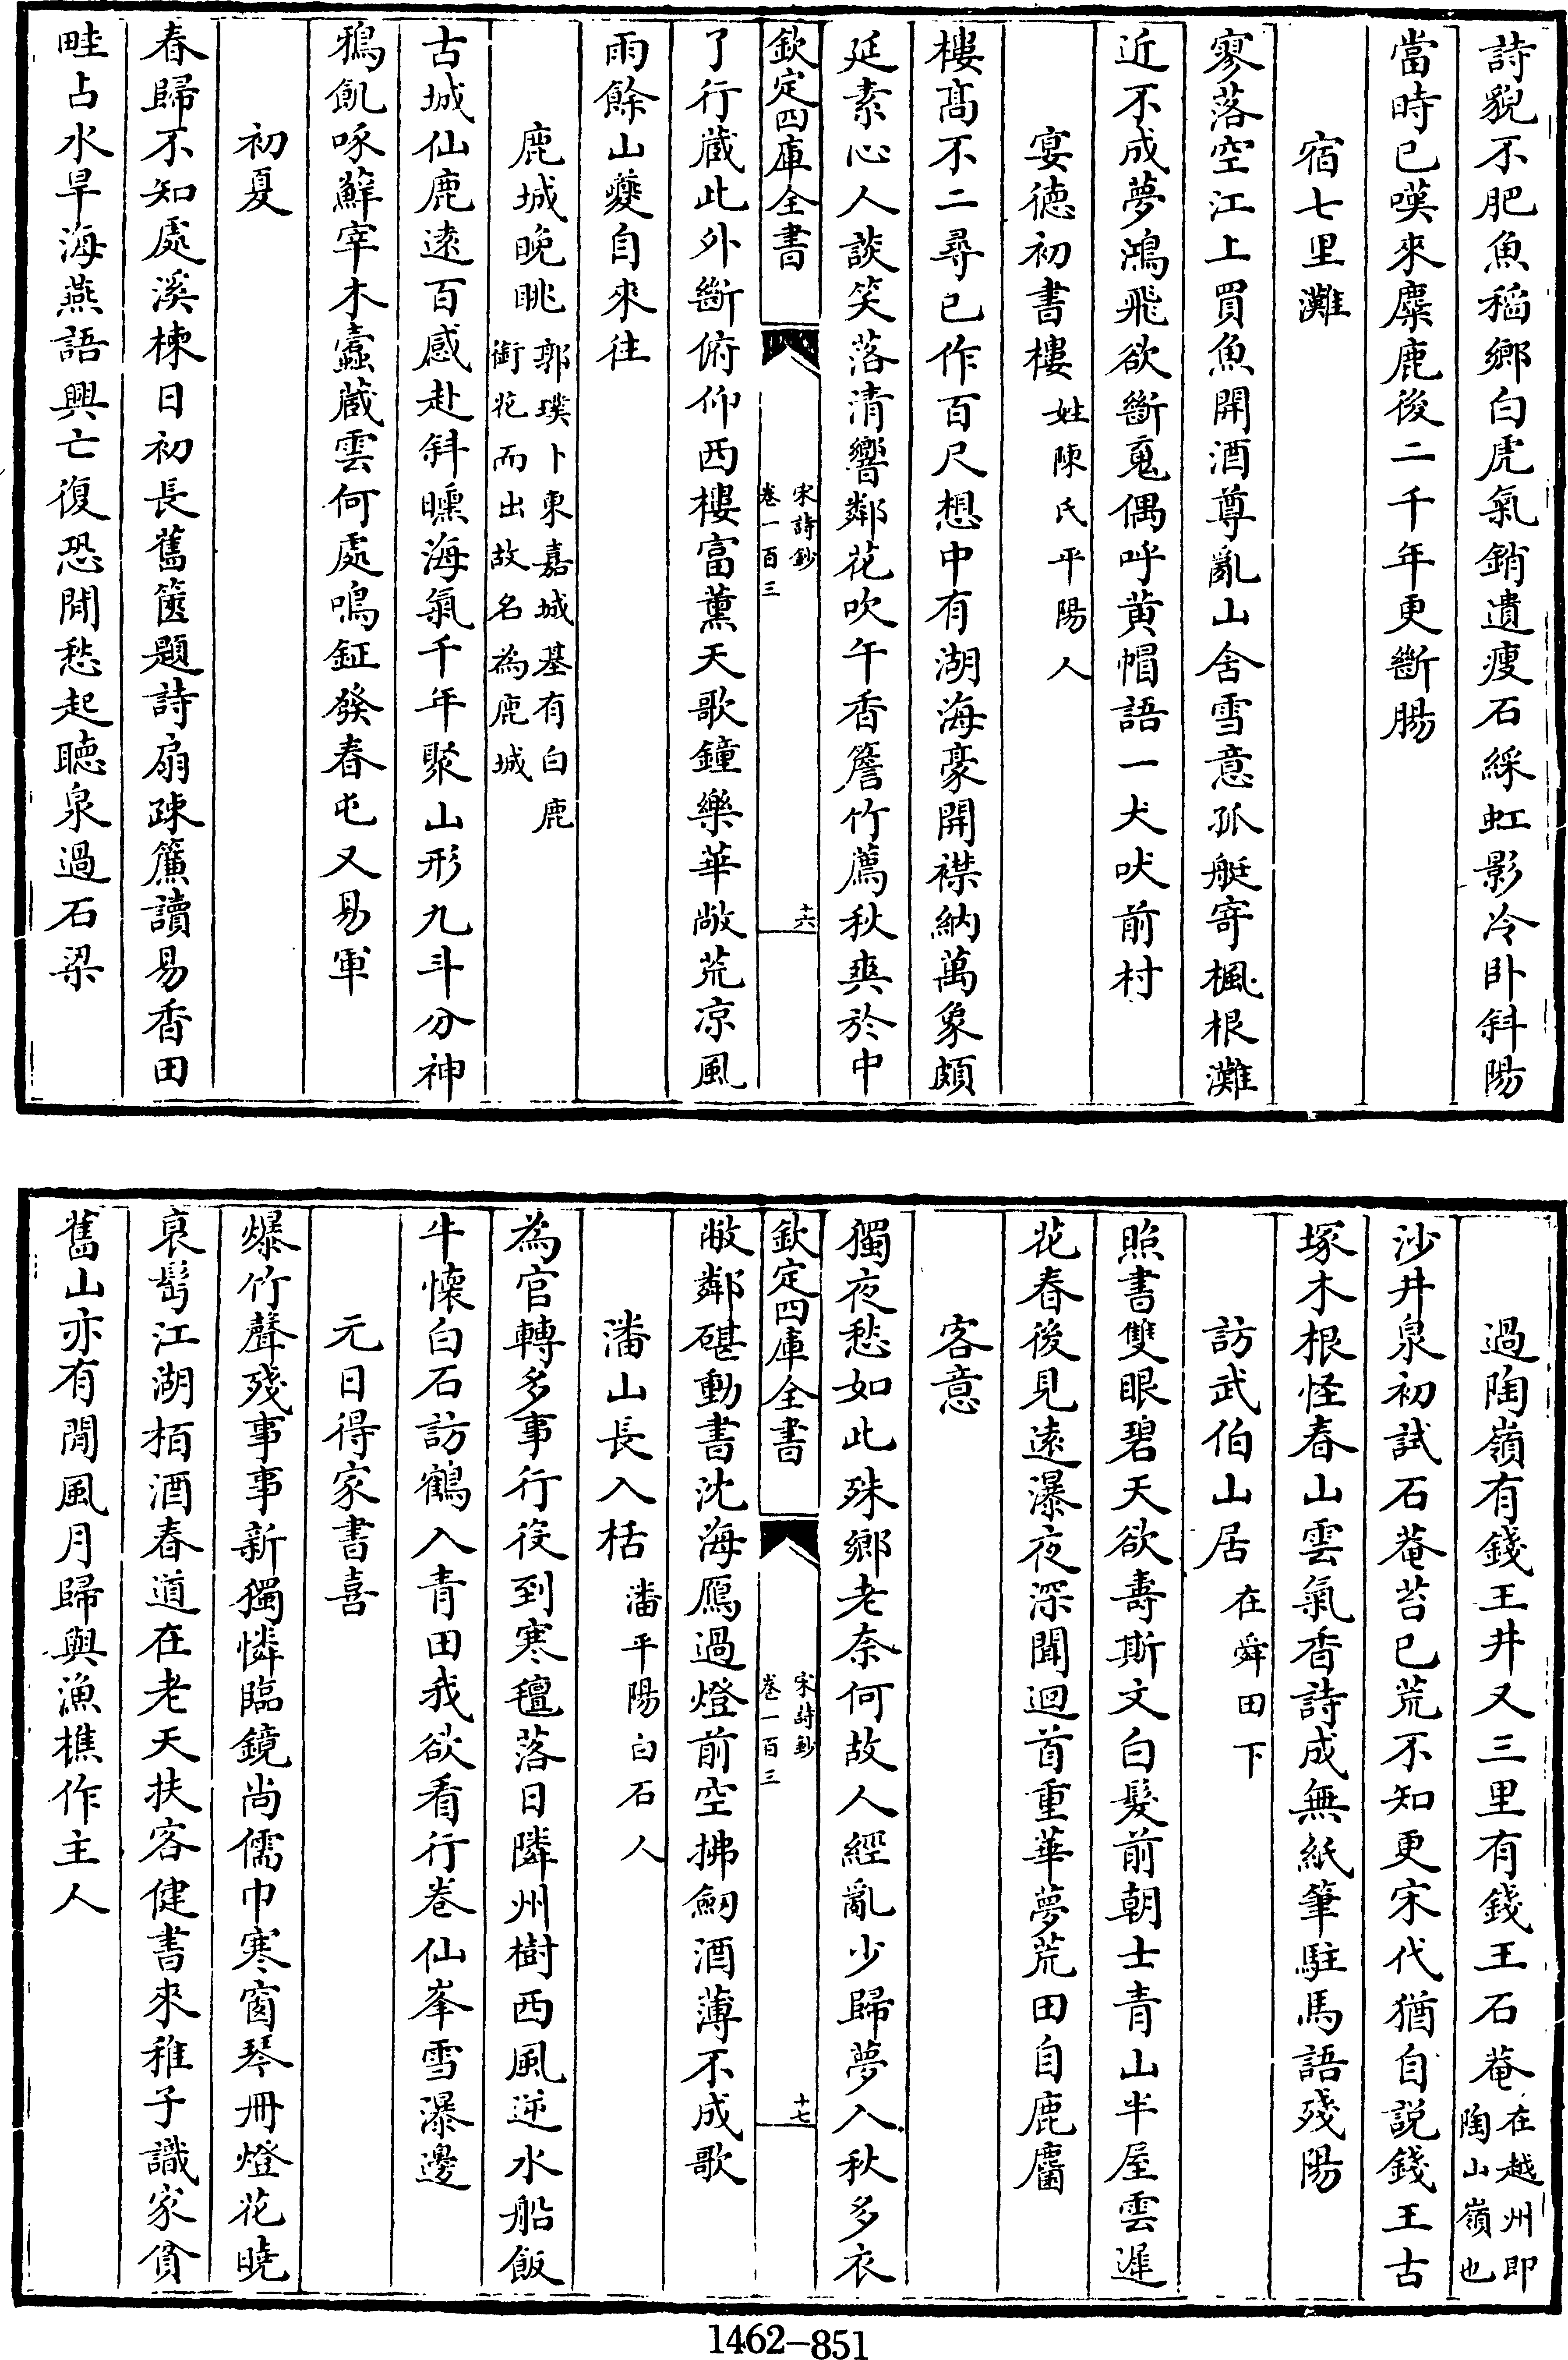 詩貌不肥魚稻鄉白虎氣銷遺瘦石綵虹影冷卧斜陽
當時已嘆來麋鹿後二千年更斷腸
宿七里灘
寥落空江上買魚開酒尊亂山含雪意孤艇寄楓根灘
近不成夢鴻飛欲斷䰟偶呼黄帽語一犬吠前村
宴德初書樓姓陳氏平陽人
樓髙不二尋已作百尺想中有湖海豪開襟納萬象頗
延素心人談笑落清響鄰花吹午香簷竹薦秋爽於中
欽定四庫全書
宋詩鈔
卷一百三
十六
了行蔵此外斷俯仰西樓富薫天歌鐘樂華敞荒凉風
雨餘山夔自來往
鹿城晚眺郭璞卜東嘉城基有白鹿
銜花而出故名為鹿城
古城仙鹿逺百感赴斜曛海氣千年聚山形九斗分神
鴉飢啄蘚宰木蠧蔵雲何處鳴鉦發春屯又易軍
初夏
春歸不知處溪楝日初長舊篋題詩扇疎簾讀易香田
畦占水旱海燕語興亡復恐閒愁起聽泉過石梁
過陶嶺有錢王井又三里有錢王石菴在越州即
陶山嶺也
沙井泉初試石菴苔已荒不知更宋代猶自説錢王古
塚木根怪春山雲氣香詩成無紙筆駐馬語殘陽
訪武伯山居在舜田下
照書雙眼碧天欲壽斯文白髮前朝士青山半屋雲遲
花春後見逺瀑夜深聞迴首重華夢荒田自鹿麕
客意
獨夜愁如此殊鄉老奈何故人經亂少歸夢入秋多衣
欽定四庫全書
宋詩鈔
卷一百三
十七
敝鄰碪動書沈海鴈過燈前空拂劒酒薄不成歌
潘山長入栝潘平陽白石人
為官轉多事行役到寒氊落日隣州樹西風逆水船飯
牛懐白石訪鶴入青田我欲看行卷仙峯雪瀑邊
元日得家書喜
爆竹聲殘事事新獨憐臨鏡尚儒巾寒窗琴冊燈花曉
哀髩江湖栢酒春道在老天扶客健書來稚子識家貧
舊山亦有閒風月歸與漁樵作主人
1462-851